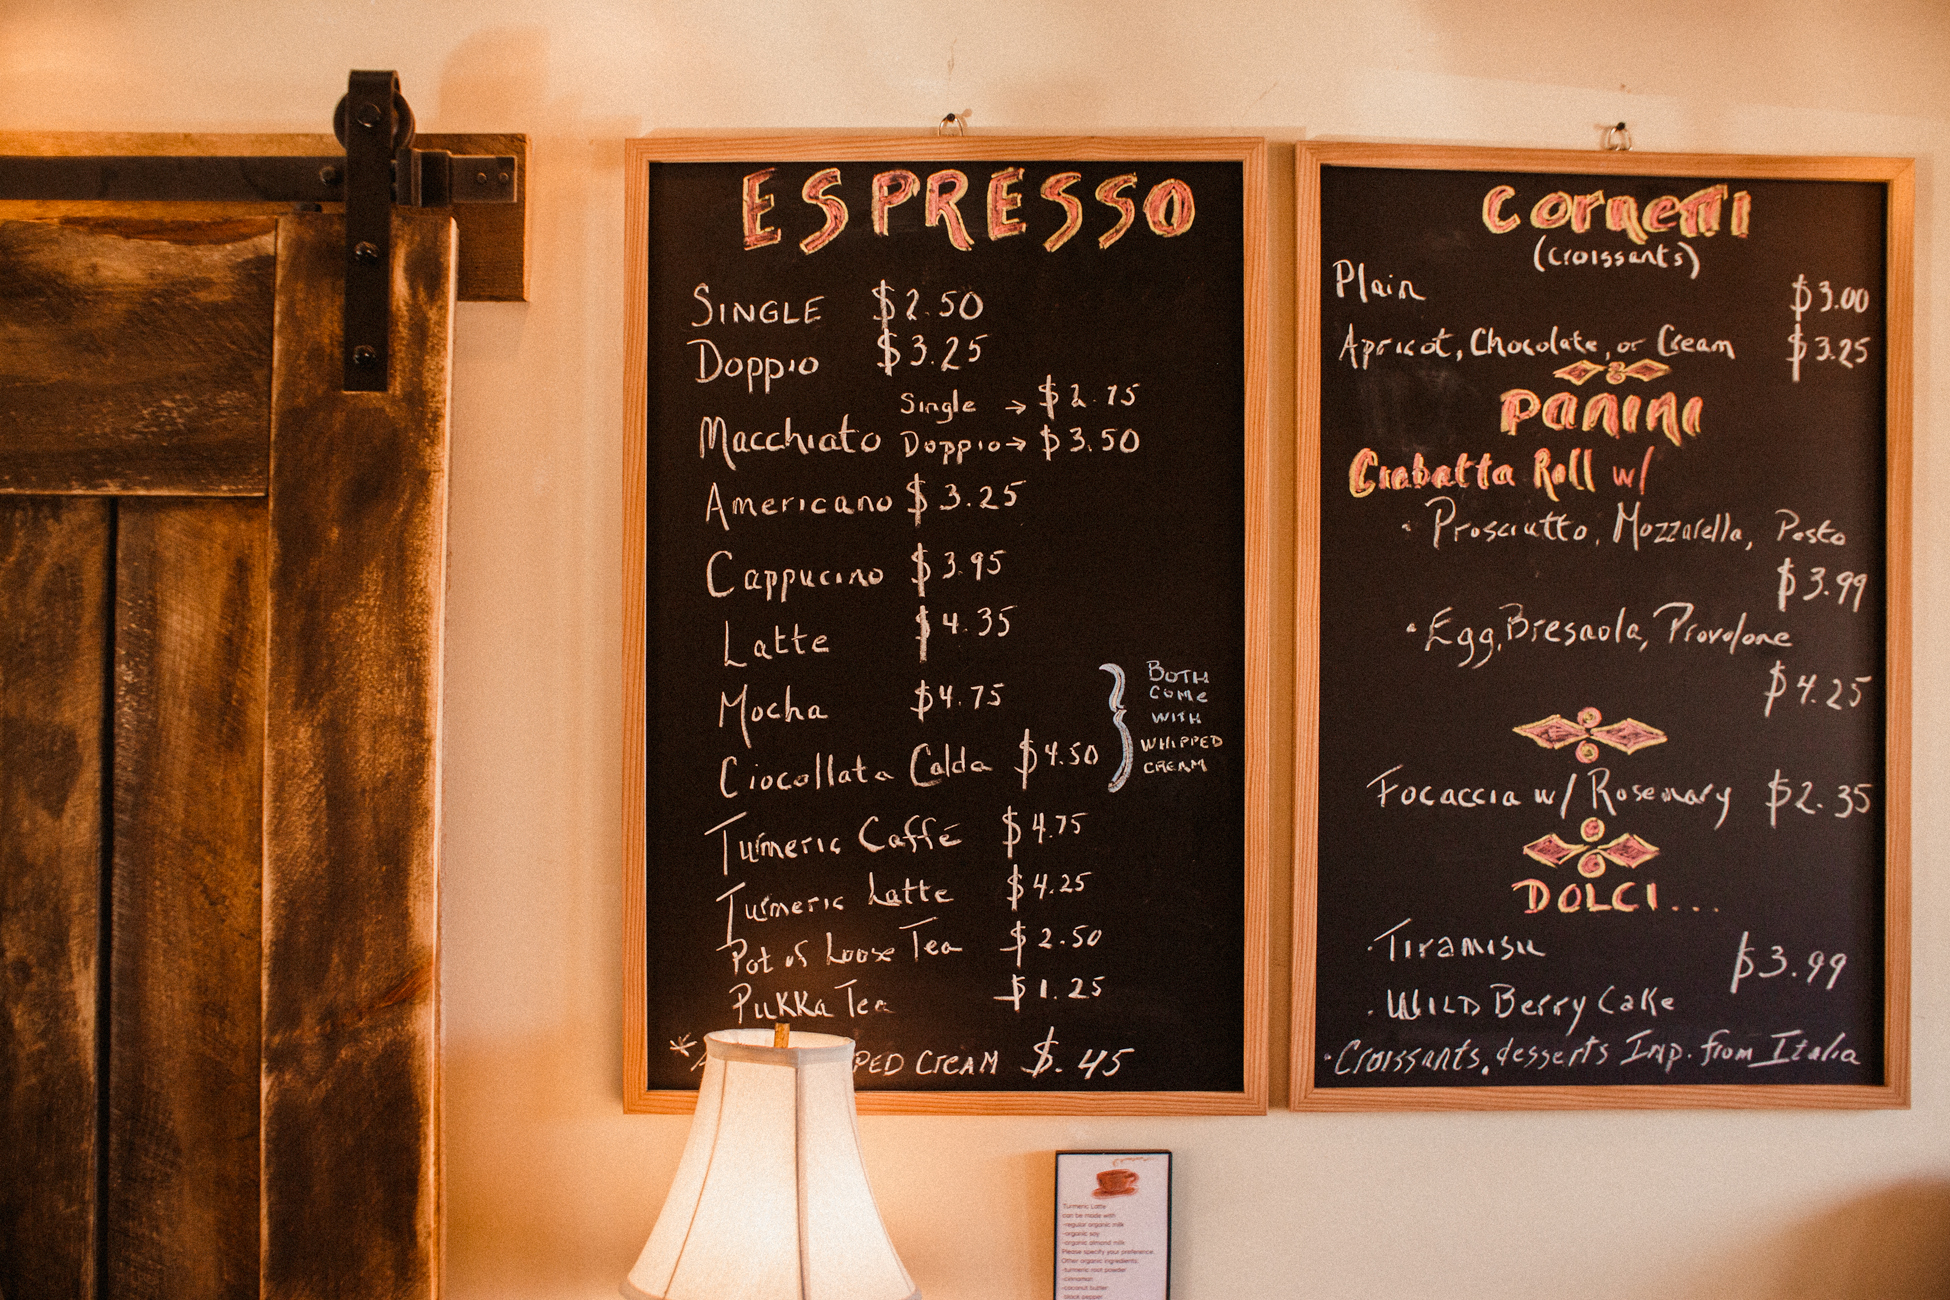 ESPRESSO
SINGLE $2.50
Doppio $3.25
Single → $2.75
Macchiato Doppio → $3.50
Americano $3.25
Cappucino $3.95
Latte $4.35
Mocha $4.75
Ciocollata Calda $4.50
BOTH
COME
WITH
WHIPPED
CREAM
Turmeric Caffé $4.75
Turmeric Latte $4.25
Pot of Loose Tea $2.50
PUKKA Tea $1.25
* PED CREAM $.45
Cornetti
(croissants)
Plain $3.00
Apricot, Chocolate, or Cream $3.25
PANINI
Ciabatta Roll w/
· Prosciutto, Mozzarella, Pesto
$3.99
· Egg, Bresaola, Provolone
$4.25
Focaccia w/ Rosemary $2.35
DOLCI...
· Tiramisu
$3.99
· WILD Berry Cake
· Croissants, desserts Imp. from Italia
Turmeric Latte
can be made with
-regular organic milk
-organic soy
-organic almond milk
Please specify your preference.
Other organic ingredients:
-turmeric root powder
-cinnamon
-coconut butter
-black pepper